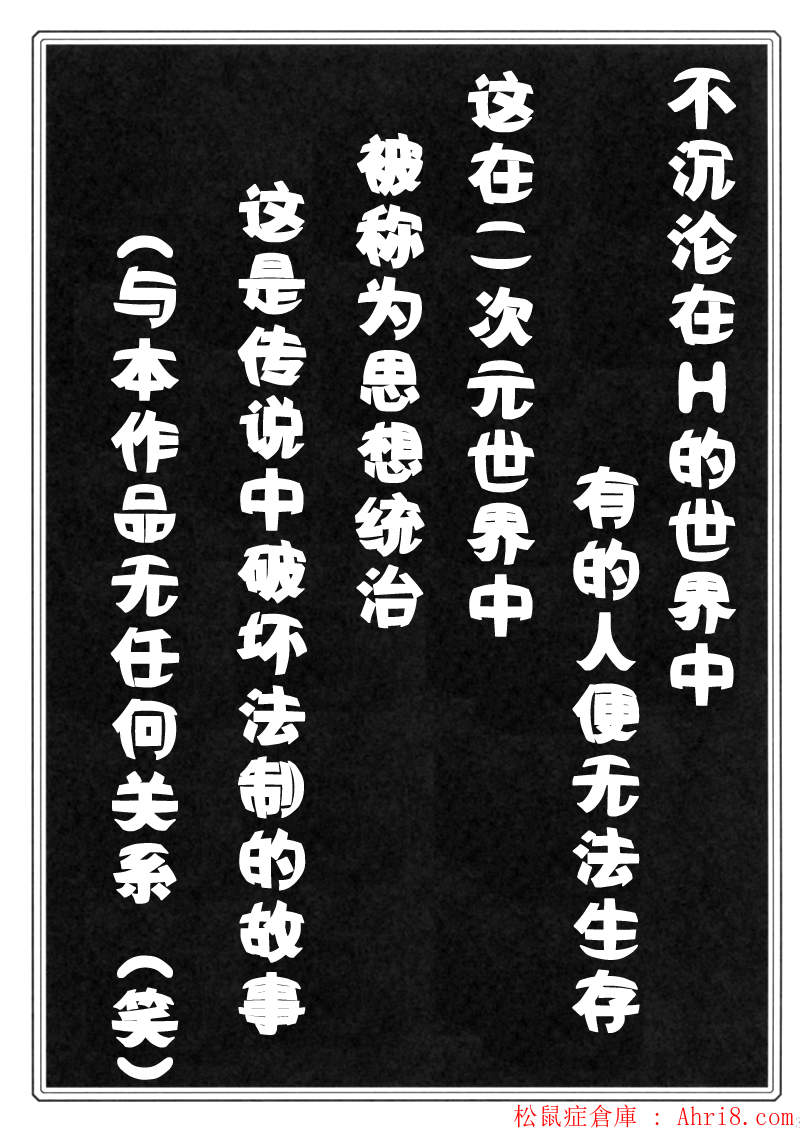 不沉沦在H的世界中
有的人便无法生存
这在二次元世界中
被称为思想统治
这是传说中破坏法制的故事
（与本作品无任何关系（笑）
松鼠症倉庫 : Ahri8.com